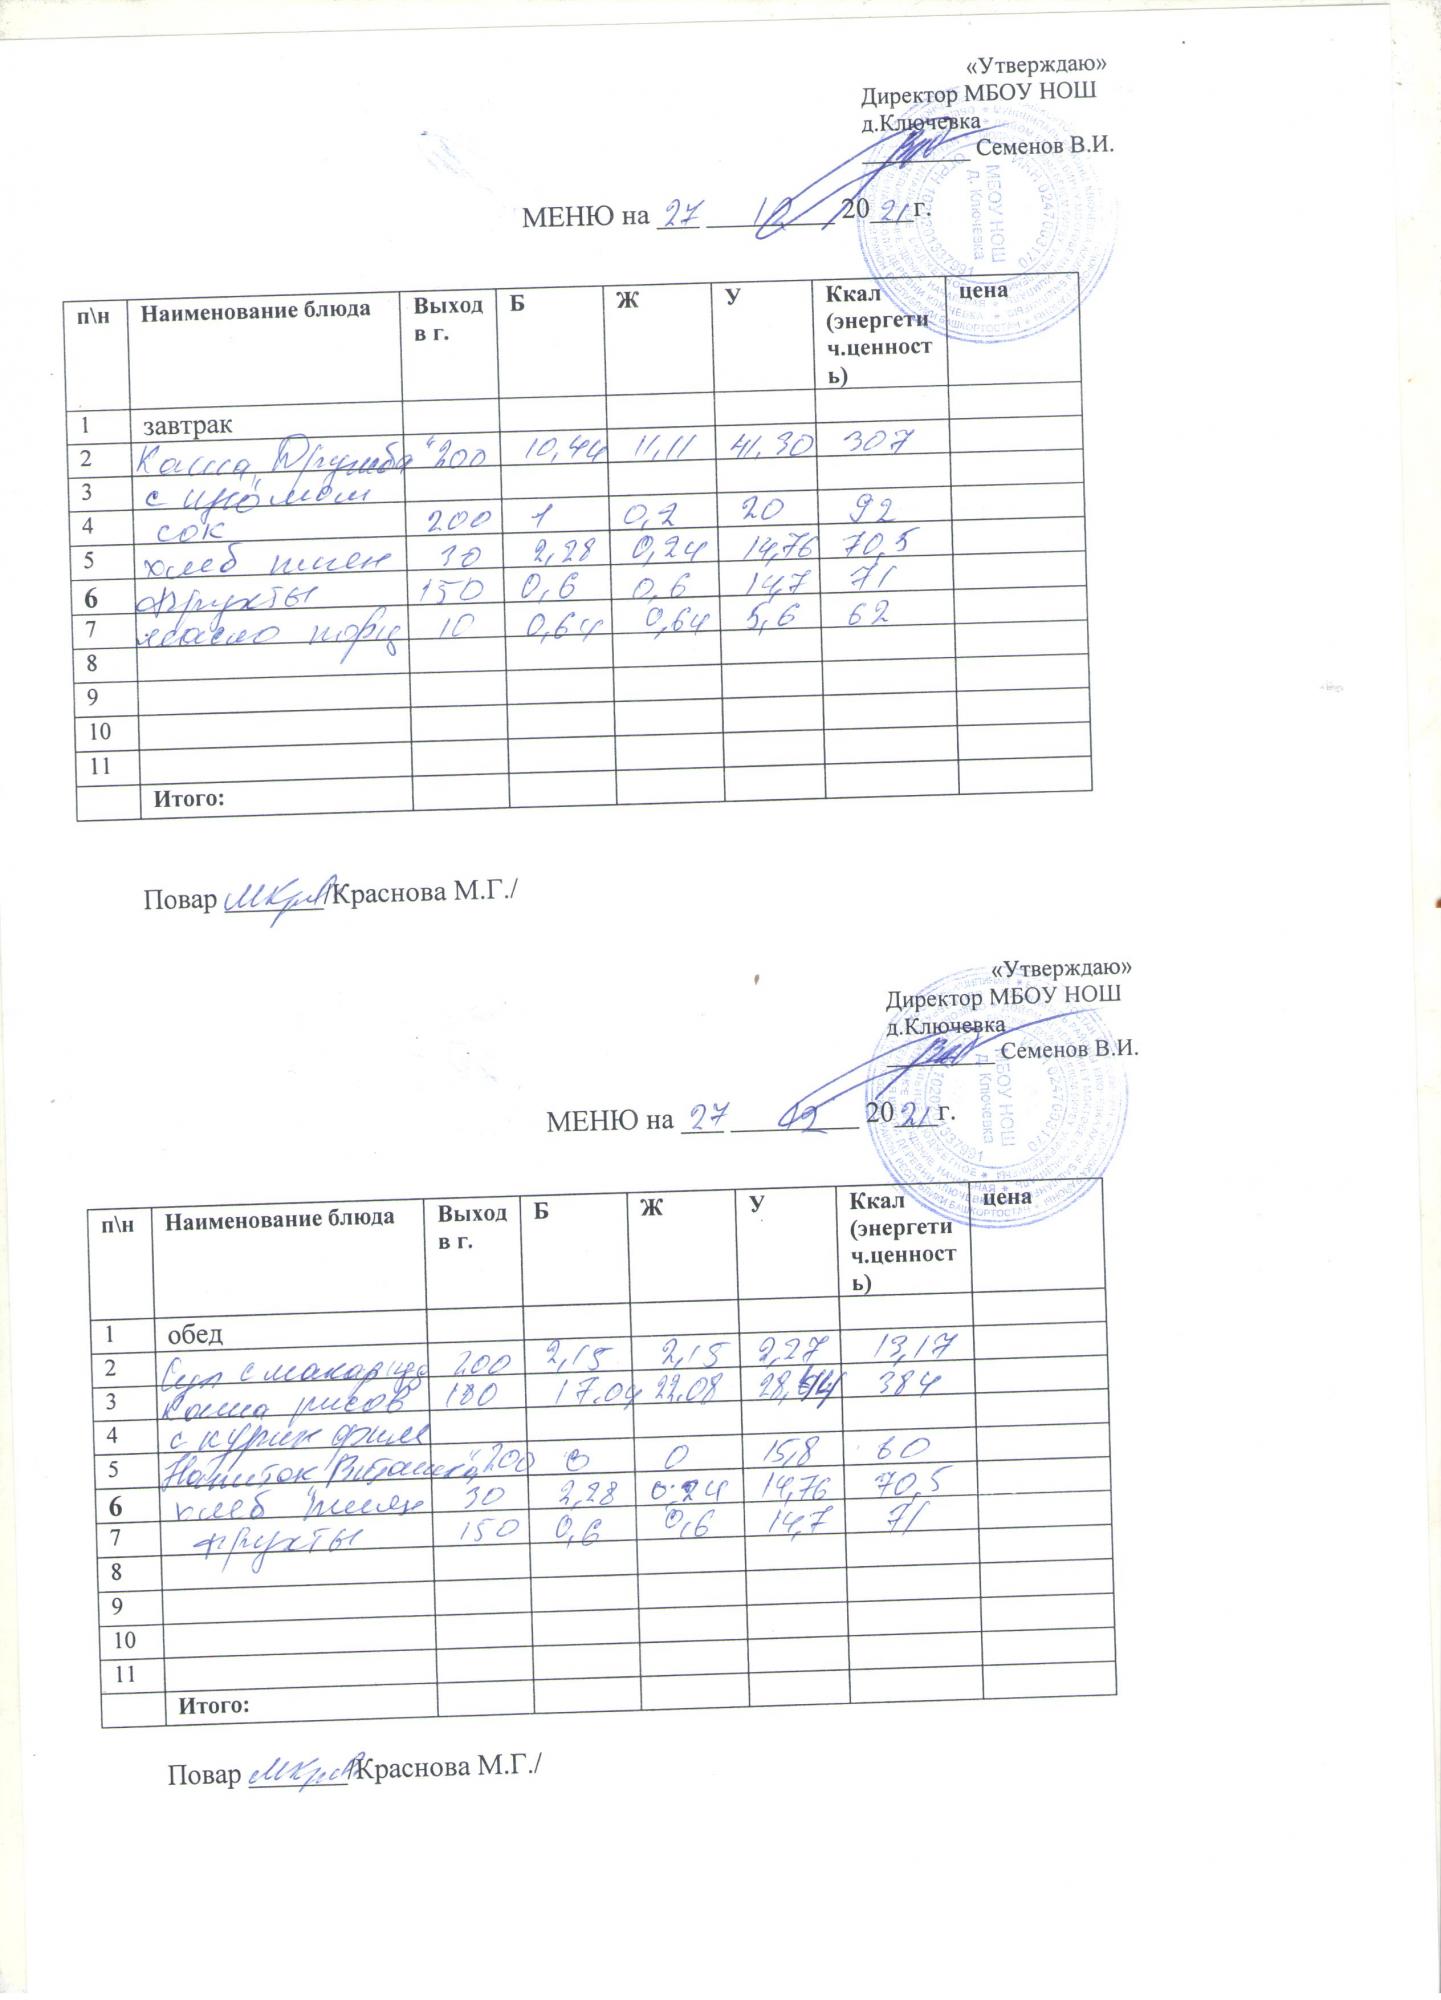 «Утверждаю»
Директор МБОУ НОШ
д.Ключевка
Семенов В.И.
МЕНЮ на 27 12 2021г.
п\н Наименование блюда Выход в г. Б Ж У Ккал (энергетич.ценность) цена
1 завтрак
2 Каша "Дружба" 200 10,44 11,11 41,30 307
3 с изюмом
4 сок 200 1 0,2 20 92
5 хлеб пшен 30 2,28 0,24 14,76 70,5
6 фрукты 150 0,6 0,6 14,7 71
7 масло порц 10 0,64 0,64 5,6 62
8
9
10
11
Итого:
Повар /Краснова М.Г./
«Утверждаю»
Директор МБОУ НОШ
д.Ключевка
Семенов В.И.
МЕНЮ на 27 12 2021г.
п\н Наименование блюда Выход в г. Б Ж У Ккал (энергетич.ценность) цена
1 обед
2 Суп с 200 2,15 2,15 2,27 13,17
3 каша рисов 180 17.04 22.08 384
4 с курин филе
5 Напиток "Витошка" 200 0 0 15,8 60
6 хлеб пшен 30 2,28 0.24 14,76 70,5
7 фрукты 150 0,6 0,6 14,7 71
8
9
10
11
Итого:
Повар /Краснова М.Г./
МБОУ НОШ
д. Ключевка
ИНН 0247003170